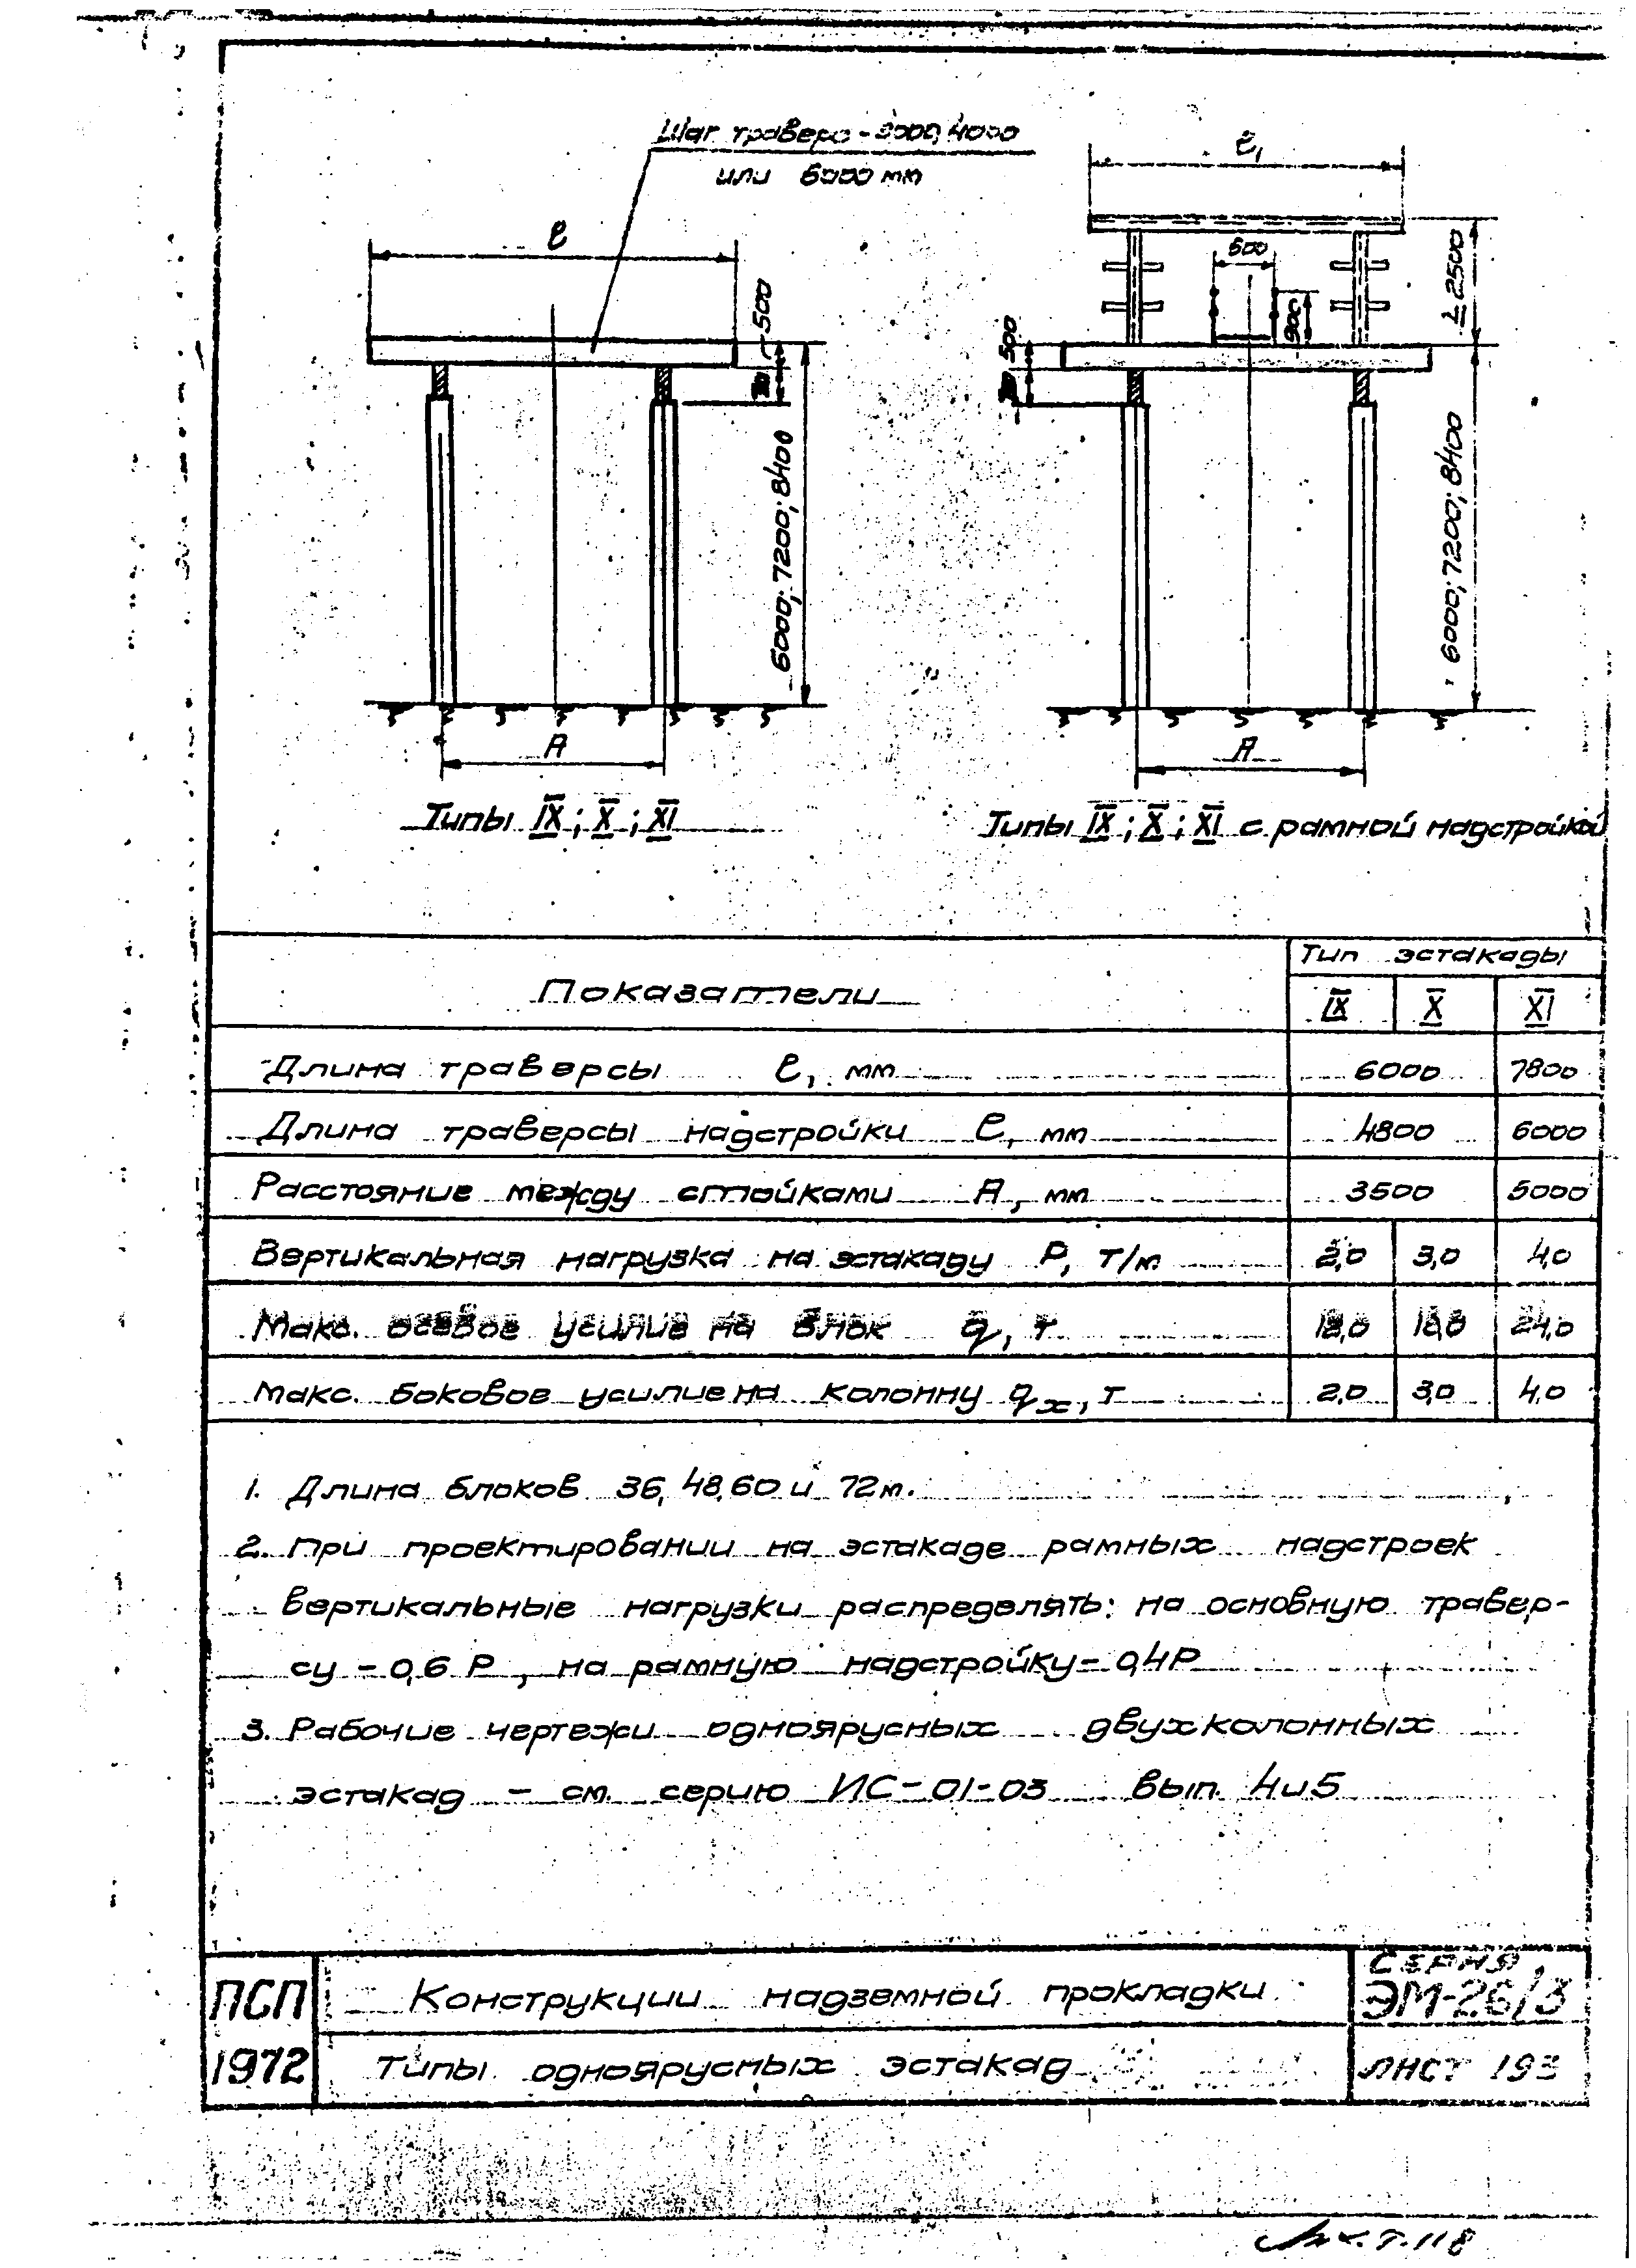 Шаг траверс - 3000, 4000
или 6000 мм
ℓ
500
6000; 7200; 8400
А
Типы IX; X; XI
ℓ₁
500
900
≤ 2500
500
6000; 7200; 8400
А
Типы IX; X; XI с рамной надстройкой
Показатели
Тип эстакады
IX X XI
Длина траверсы ℓ, мм 6000 7800
Длина траверсы надстройки ℓ, мм 4800 6000
Расстояние между стойками А, мм 3500 5000
Вертикальная нагрузка на эстакаду Р, Т/м 2,0 3,0 4,0
Макс. осевое усилие на блок q, т 24,0
Макс. боковое усилие на колонну qх, т 2,0 3,0 4,0
1. Длина блоков 36, 48, 60 и 72 м.
2. При проектировании на эстакаде рамных надстроек
вертикальные нагрузки распределять: на основную травер-
су - 0,6 Р, на рамную надстройку - 0,4Р
3. Рабочие чертежи одноярусных двухколонных
эстакад - см. серию ИС-01-03 вып. 4 и 5
ПСП
1972
Конструкции надземной прокладки
Типы одноярусных эстакад
СЕРИЯ
ЭМ-26/3
ЛИСТ 193